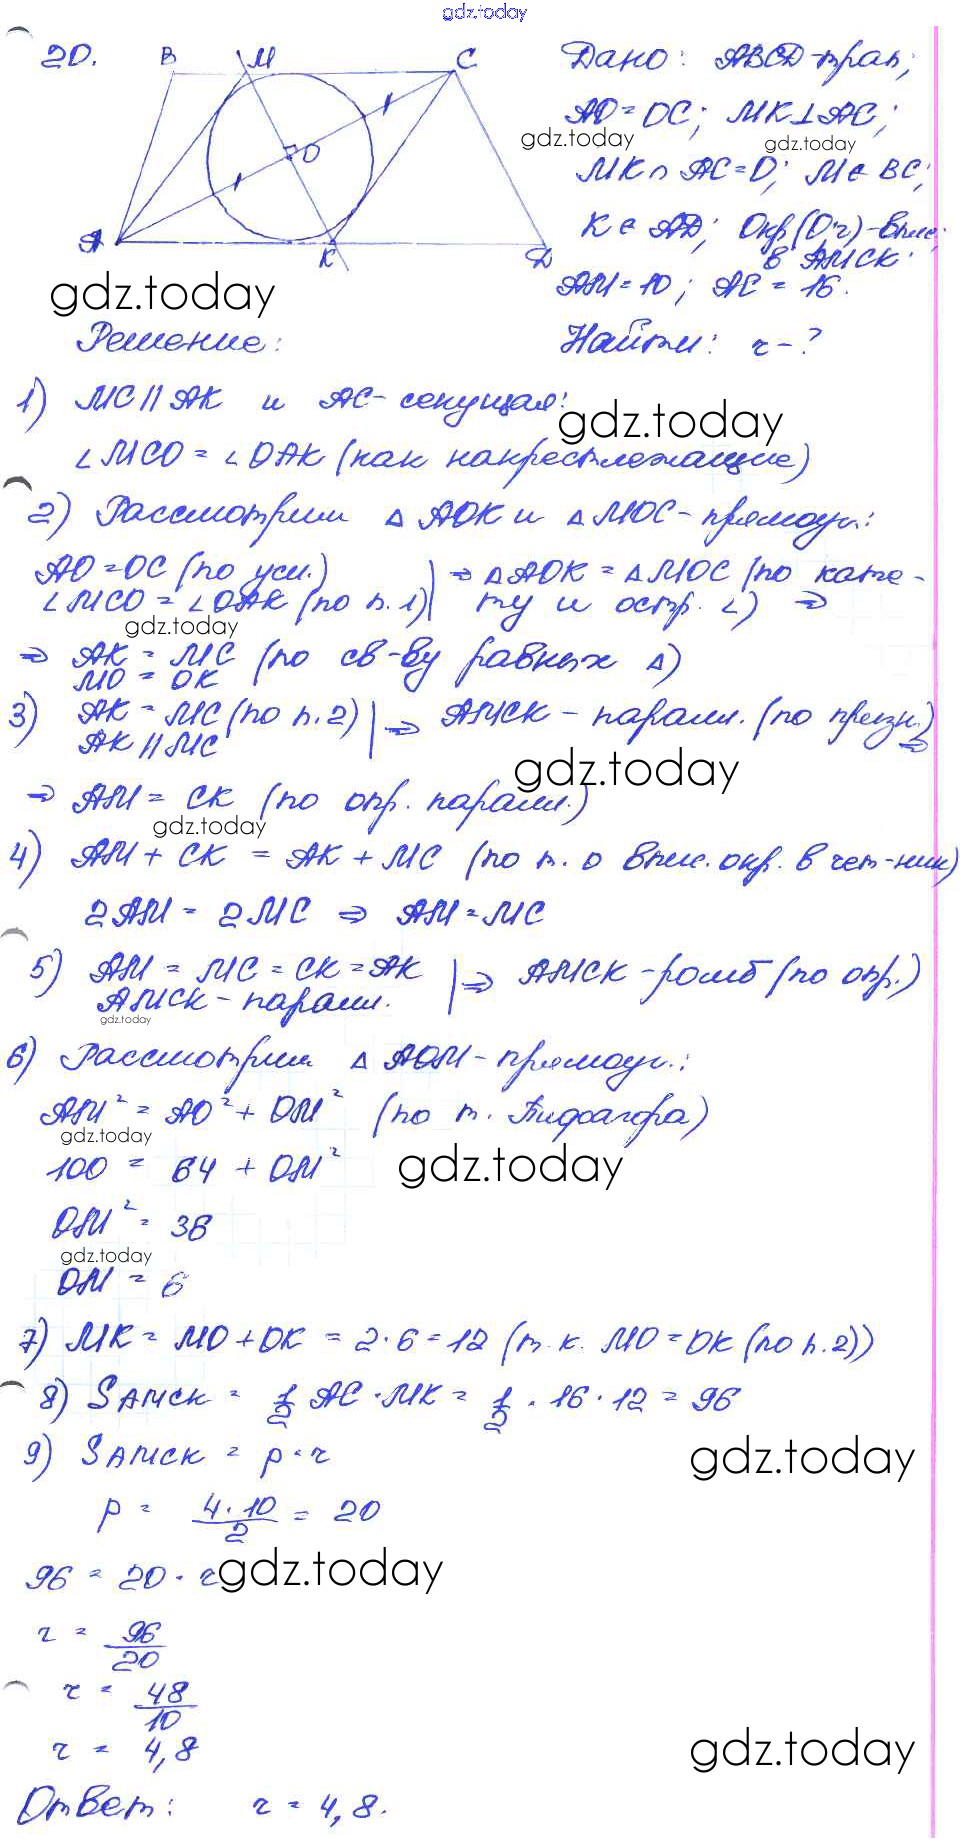 gdz.today
20. B M C Дано: ABCD-трап;
AO=OC; MK⊥AC;
gdz.today gdz.today
O MK∩AC=O; M∈BC;
A K D K∈AD; Окр(O;r)-впис.
в AMCK.
gdz.today AM=10; AC=16.
Решение: Найти: r-?
1) MC∥AK и AC-секущая:
gdz.today
∠MCO=∠OAK (как накрестлежащие)
2) Рассмотрим △AOK и △MOC-прямоуг.:
AO=OC (по усл.) | ⇒ △AOK=△MOC (по кате-
∠MCO=∠OAK (по п.1) | ту и остр. ∠) ⇒
gdz.today
⇒ AK=MC (по св-ву равных △)
MO=OK
3) AK=MC (по п.2) | ⇒ AMCK-паралл. (по призн.)
AK∥MC ⇒
gdz.today
⇒ AM=CK (по опр. паралл.)
gdz.today
4) AM+CK=AK+MC (по т. о впис. окр. в чет-ник)
2AM=2MC ⇒ AM=MC
5) AM=MC=CK=AK | ⇒ AMCK-ромб (по опр.)
AMCK-паралл.
gdz.today
6) Рассмотрим △AOM-прямоуг.:
AM²=AO²+OM² (по т. Пифагора)
gdz.today
100=64+OM² gdz.today
OM²=36
gdz.today
OM=6
7) MK=MO+OK=2·6=12 (т.к. MO=OK (по п.2))
8) SAMCK=1/2 AC·MK=1/2·16·12=96
9) SAMCK=p·r gdz.today
p=4·10/2=20
96=20·r gdz.today
r=96/20
r=48/10
r=4,8 gdz.today
Ответ: r=4,8.